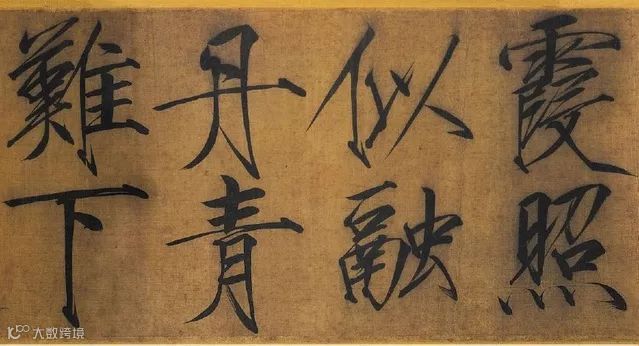 霞照
似融
丹青
難下
大数跨境